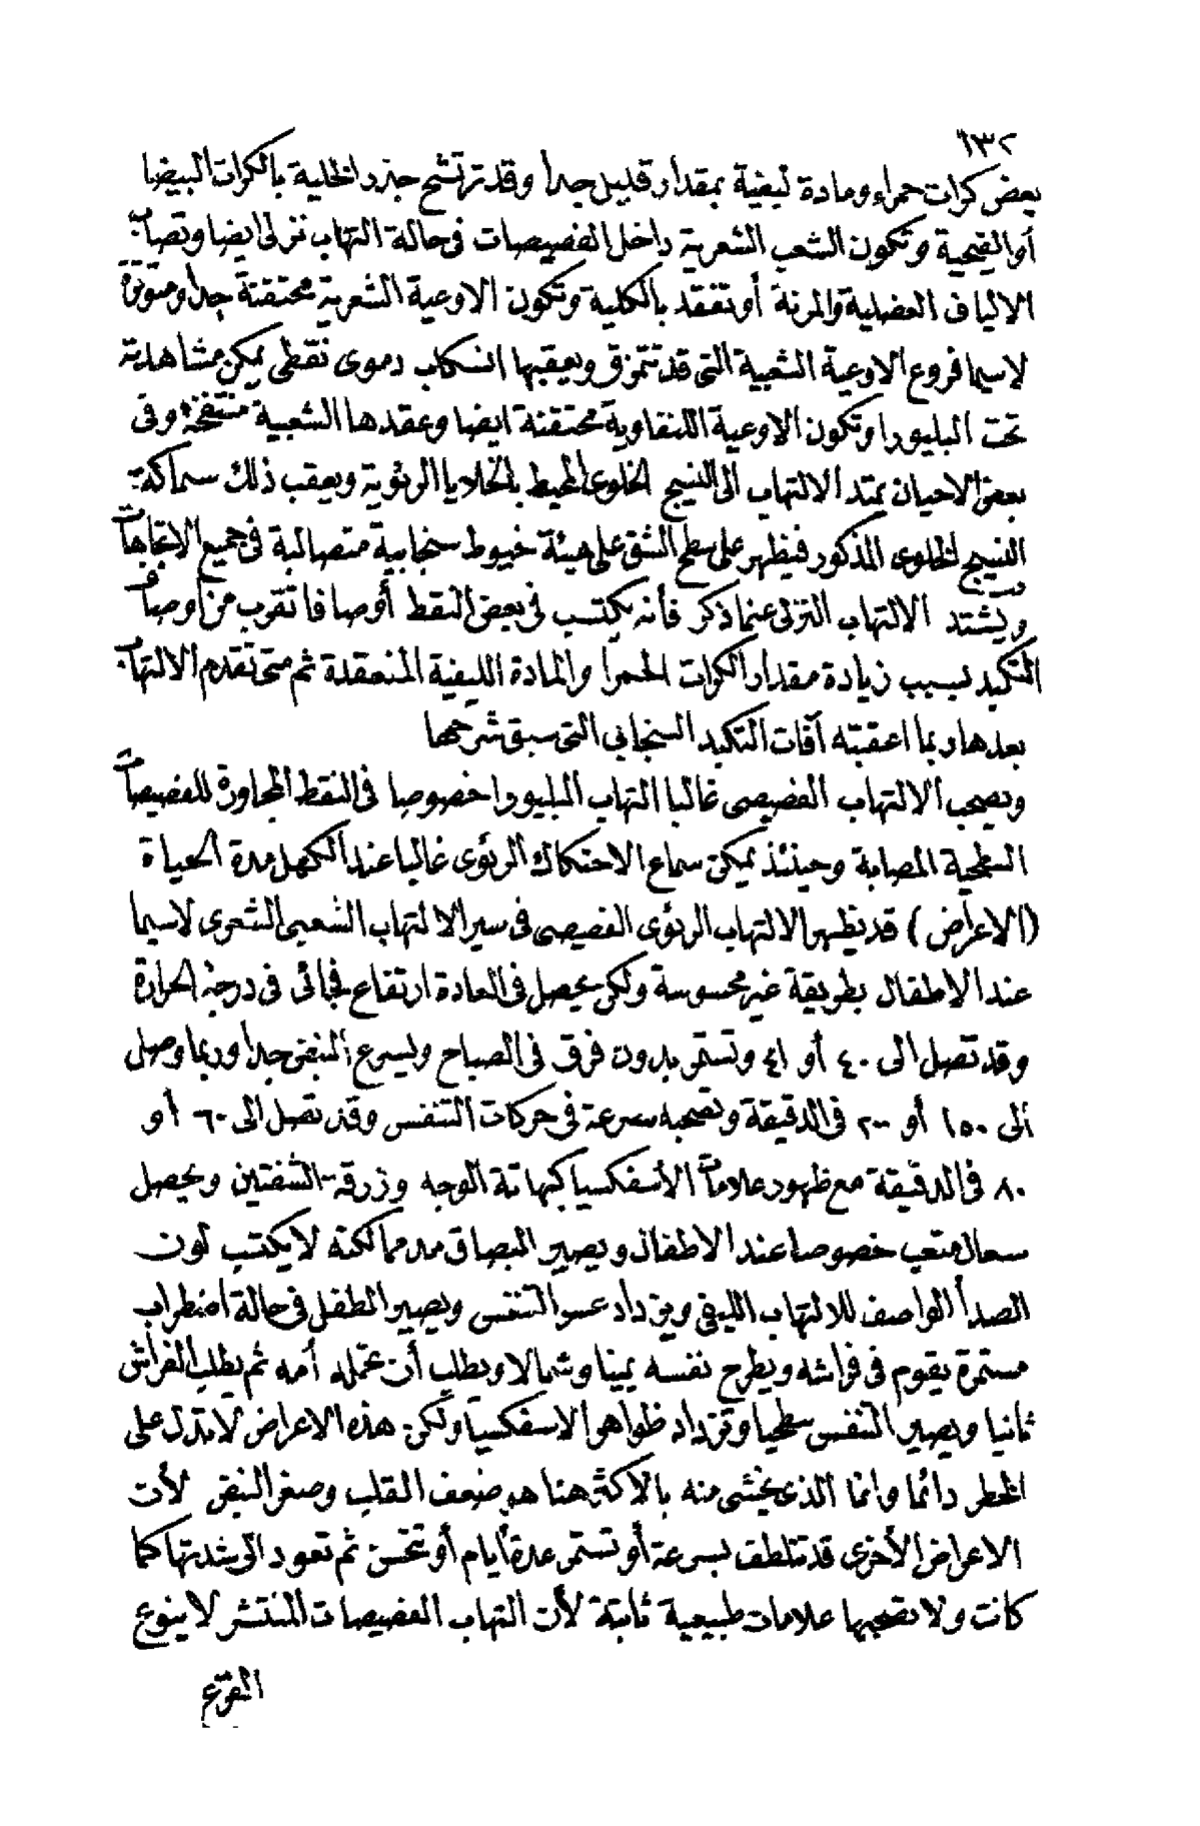 ١٣٢
بعض كرات حمراء ومادة ليفية بمقدار قليل جدا وقد ترتشح جذر الخلية بالكرات البيضا
أو القيحية وتكون الشعب الشعرية داخل الفصيصات فى حالة التهاب نزلى ايضا وتصاب
الالياف العضلية والمرنة أو تفقد بالكلية وتكون الاوعية الشعرية محتقنة جدا ومتوترة
لاسيما فروع الاوعية الشعبية التى قد تتمزق ويعقبها انسكاب دموى نقطى يمكن مشاهدته
تحت البليورا وتكون الاوعية اللنفاوية محتقنة ايضا وعقدها الشعبية منتفخة وفى
بعض الاحيان يمتد الالتهاب الى النسيج الخلوى المحيط بالخلايا الرئوية ويعقب ذلك سماكة
النسيج الخلوى المذكور فيظهر على سطح الشق على هيئة خيوط سنجابية متصالبة فى جميع الاتجاهات
ويشتد الالتهاب النزلى عما ذكر فأنه يكتسب فى بعض النقط أوصافا تقرب من أوصاف
التكبد بسبب زيادة مقدار الكرات الحمرا والمادة الليفية المنعقدة ثم متى تقدم الالتهاب
بعدها ربما اعقبته آفات التكبد السنجابي التى سبق شرحها
ويصحب الالتهاب الفصيصى غالبا التهاب البليورا خصوصا فى النقط المجاورة للفصيصات
السطحية المصابة وحينئذ يمكن سماع الاحتكاك الرئوى غالبا عند الكهل مدة الحياة
(الاعراض) قد يظهر الالتهاب الرئوى الفصيصى فى سير الالتهاب الشعبى الشعرى لاسيما
عند الاطفال بطريقة غير محسوسة ولكن يحصل فى العادة ارتفاع فجائى فى درجة الحرارة
وقد تصل الى ٤٠ أو ٤١ وتستمر بدون فرق فى الصباح ويسرع النبض جدا وربما وصل
الى ١٥٠ أو ٢٠٠ فى الدقيقة وتصحبه سرعة فى حركات التنفس وقد تصل الى ٦٠ أو
٨٠ فى الدقيقة مع ظهور علامات الأسفكسيا كبهاتة الوجه وزرقة الشفتين ويحصل
سعال متعب خصوصا عند الاطفال ويصير البصاق مدمما لكنه لا يكتسب لون
الصدأ الواصف للالتهاب الليفى ويزداد عسر التنفس ويصير الطفل فى حالة اضطراب
مستمرة يقوم فى فراشه ويطرح نفسه يمينا وشمالا ويطلب أن تحمله أمه ثم يطلب الفراش
ثانيا ويصير التنفس سطحيا وتزداد ظواهر الاسفكسيا ولكن هذه الاعراض لا تدل على
الخطر دائما وانما الذى يخشى منه بالاكثر هنا هو ضعف القلب وصغر النبض لأن
الاعراض الأخرى قد تتلطف بسرعة أو تستمر عدة أيام أو تتحسن ثم تعود الى شدتها كما
كانت ولا تصحبها علامات طبيعية ثابتة لأن التهاب الفصيصات المنتشر لا ينوع
القرع